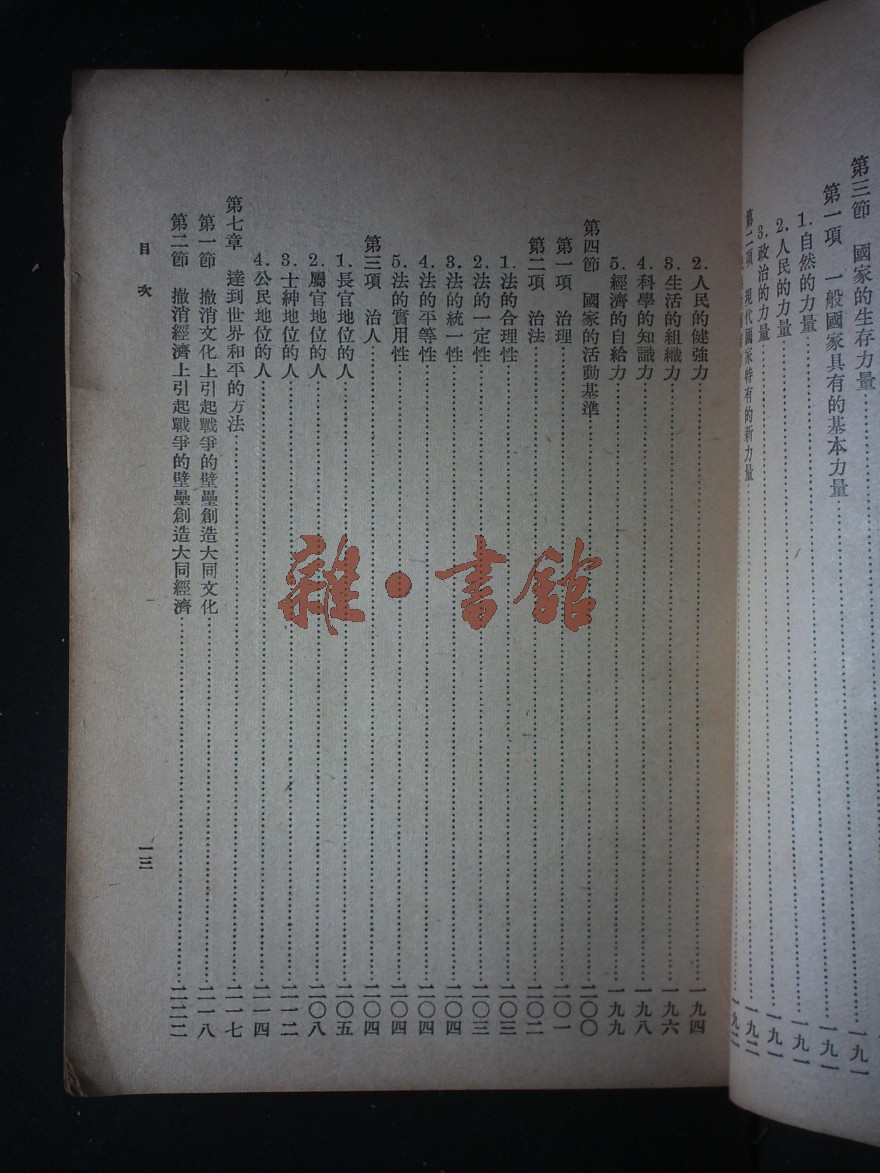 第三節　國家的生存力量……一九一
第一項　一般國家具有的基本力量……一九一
1.自然的力量……一九一
2.人民的力量……一九一
3.政治的力量……一九二
第二項　現代國家特有的新力量……一九二
2.人民的健強力……一九四
3.生活的組織力……一九六
4.科學的知識力……一九八
5.經濟的自給力……一九九
第四節　國家的活動基準……二〇〇
第一項　治理……二〇一
第二項　治法……二〇二
1.法的合理性……二〇三
2.法的一定性……二〇三
3.法的統一性……二〇四
4.法的平等性……二〇四
5.法的實用性……二〇四
第三項　治人……二〇四
1.長官地位的人……二〇五
2.屬官地位的人……二〇八
3.士紳地位的人……二一二
4.公民地位的人……二一四
第七章　達到世界和平的方法……二一七
第一節　撤消文化上引起戰爭的壁壘創造大同文化……二一八
第二節　撤消經濟上引起戰爭的壁壘創造大同經濟……二二二
目次
一三
雜·書館